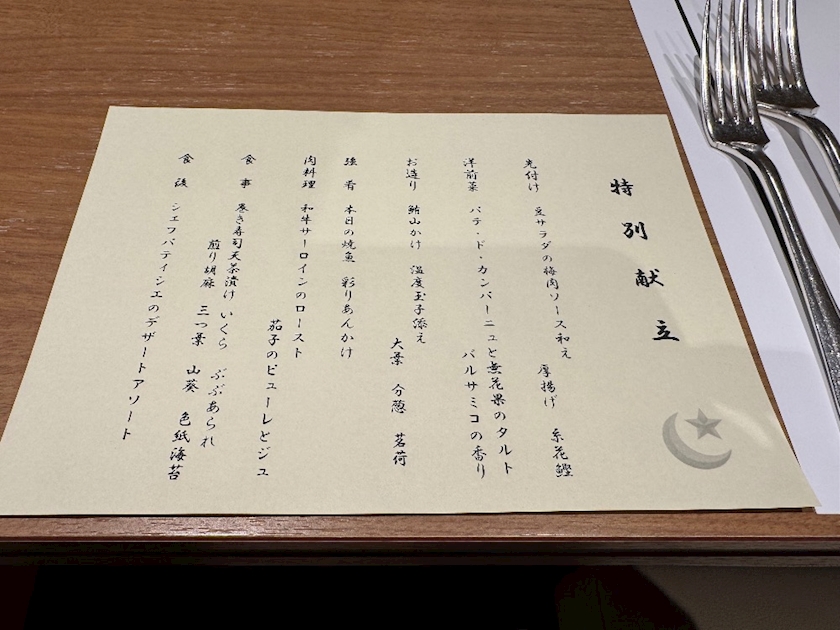 特別献立
先付け 豆サラダの梅肉ソース和え
厚揚げ 糸花鰹
洋前菜 パテ・ド・カンパーニュと無花果のタルト
バルサミコの香り
お造り 鮪山かけ 温度玉子添え
大葉 分葱 茗荷
強肴 本日の焼魚 彩りあんかけ
肉料理 和牛サーロインのロースト
茄子のピューレとジュ
食事 巻き寿司天茶漬け いくら ぶぶあられ
煎り胡麻 三つ葉 山葵 色紙海苔
食後 シェフパティシエのデザートアソート